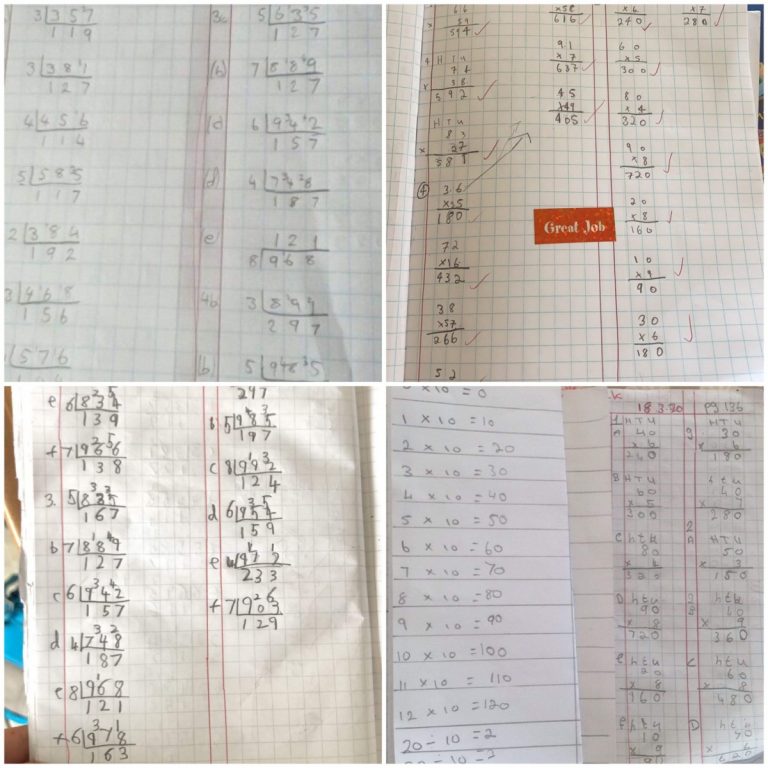 3|357
119
3|381
127
4|456
114
5|585
117
2|384
192
3|468
156
|576
3c 5|635
127
(b) 7|889
127
(c 6|942
157
(d) 4|748
187
e 121
8|968
4b 3|891
297
(b. 5|985
66
x 59
594
4 HTU
74
x 38
592
HTU
83
x 37
581
④ 36
x25
180
72
x16
432
38
x57
266
52
x58
616
91
x7
637
45
x49
405
Great Job
x6
240
60
x5
300
80
x4
320
90
x8
720
20
x8
160
10
x9
90
30
x6
180
x7
280
e 6|834
139
f 7|966
138
3. 5|835
167
b 7|889
127
c 6|942
157
d 4|748
187
e 8|968
121
f 6|978
163
297
b 5|985
197
c 8|992
124
d 6|954
159
e 4|932
233
f 7|903
129
0 x 10 = 0
1 x 10 = 10
2 x 10 = 20
3 x 10 = 30
4 x 10 = 40
5 x 10 = 50
6 x 10 = 60
7 x 10 = 70
8 x 10 = 80
9 x 10 = 90
10 x 10 = 100
11 x 10 = 110
12 x 10 = 120
20 ÷ 10 = 2
k 18 3.20 pg 136
1 HTU
A 40
x 6
240
B HTU
60
x 5
300
C htu
80
x 4
320
D htu
90
x 8
720
E htu
20
x 8
160
f htu
10
x 9
90
g HTU
30
x 6
180
htu
40
x 7
280
2
A HTU
50
x 3
150
2 htu
B 40
x 9
360
C htu
60
x 8
480
D htu